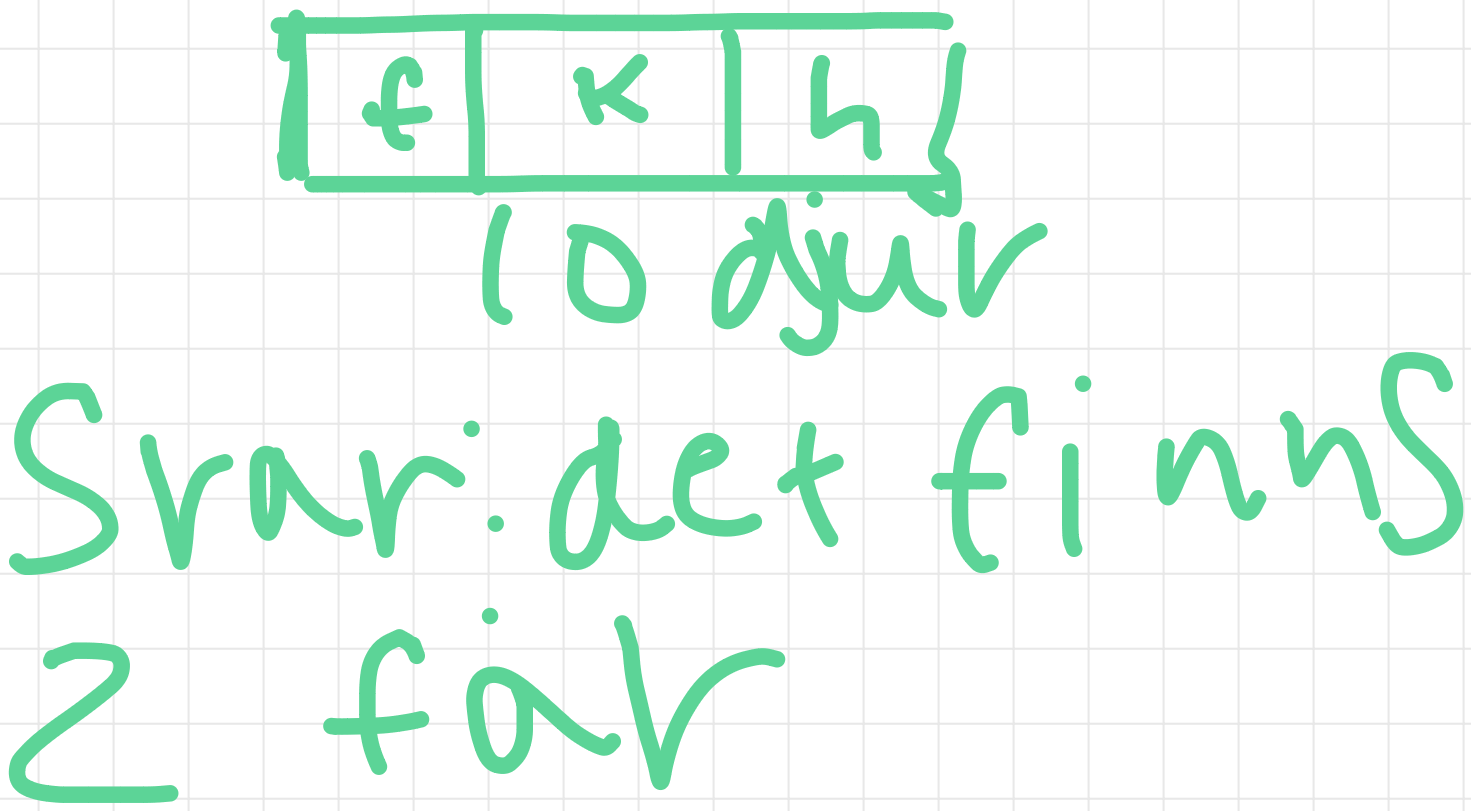 f k h
10 djur
Svar: det finns
2 får